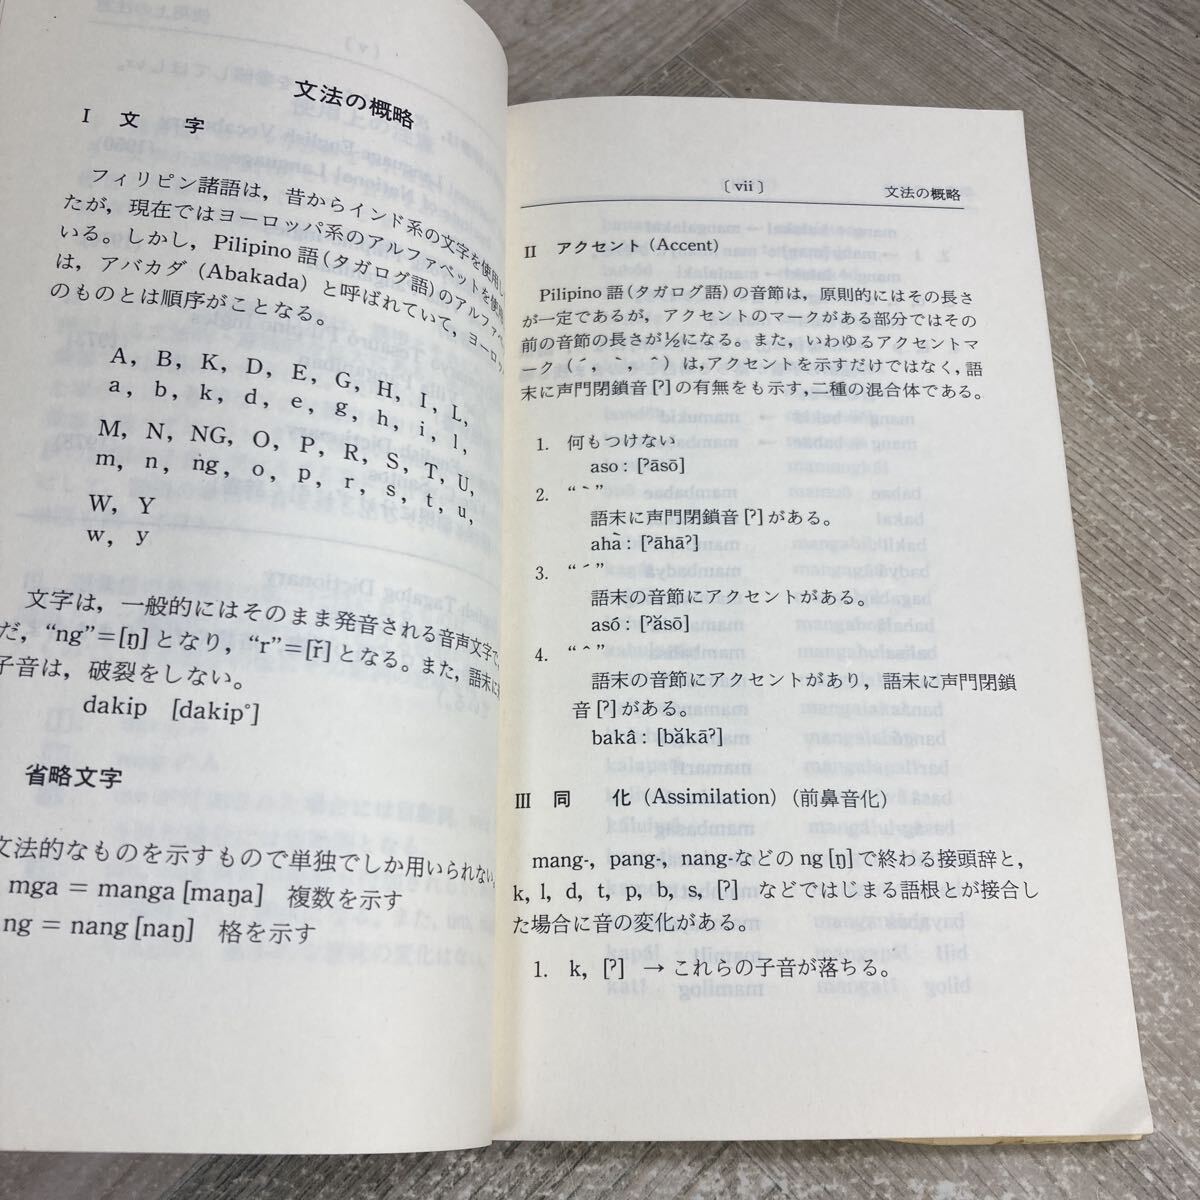 文法の概略
I 文 字
フィリピン諸語は，昔からインド系の文字を使用し
たが，現在ではヨーロッパ系のアルファベットを使
いる。しかし，Pilipino 語（タガログ語）のアルファ
は，アバカダ（Abakada）と呼ばれていて，ヨーロッ
のものとは順序がことなる。
A, B, K, D, E, G, H, I, L,
a, b, k, d, e, g, h, i, l,
M, N, NG, O, P, R, S, T, U,
m, n, n͠g, o, p, r, s, t, u,
W, Y
w, y
文字は，一般的にはそのまま発音される音声文字で
だ，“ng”＝[ŋ] となり，“r”＝[ř] となる。また，語末に
子音は，破裂をしない。
dakip [dakip°]
省略文字
文法的なものを示すもので単独でしか用いられない。
mga = manga [maŋa] 複数を示す
ng = nang [naŋ] 格を示す
〔 vii 〕 文法の概略
II アクセント（Accent）
Pilipino 語（タガログ語）の音節は，原則的にはその長さ
が一定であるが，アクセントのマークがある部分ではその
前の音節の長さが½になる。また，いわゆるアクセントマ
ーク（ˊ，ˋ，ˆ）は，アクセントを示すだけではなく，語
末に声門閉鎖音[ˀ]の有無をも示す，二種の混合体である。
1. 何もつけない
aso : [ˀāsō]
2. “ˋ”
語末に声門閉鎖音[ˀ]がある。
ahà : [ˀāhāˀ]
3. “ˊ”
語末の音節にアクセントがある。
asó : [ˀăsō]
4. “ˆ”
語末の音節にアクセントがあり，語末に声門閉鎖
音[ˀ]がある。
bakâ : [băkāˀ]
III 同 化（Assimilation）（前鼻音化）
mang-, pang-, nang-などの ng [ŋ] で終わる接頭辞と，
k, l, d, t, p, b, s, [ˀ] などではじまる語根とが接合し
た場合に音の変化がある。
1. k, [ˀ] → これらの子音が落ちる。